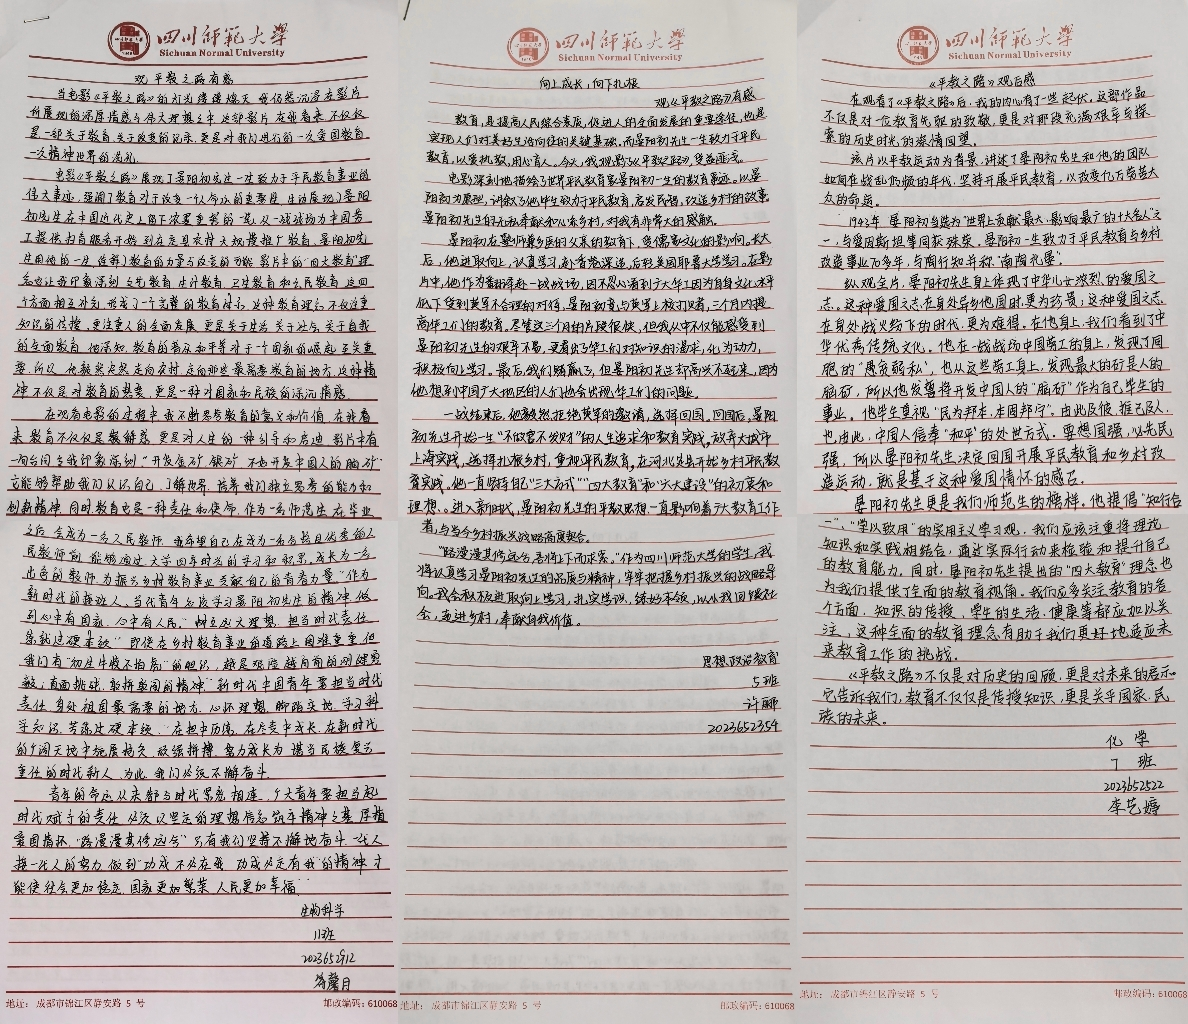 四川师范大学
Sichuan Normal University
观《平教之路》有感
当电影《平教之路》的灯光缓缓熄灭 我仍然沉浸在影片
所展现的深厚情感与伟大理想之中 这部影片 在我看来 不仅仅
是一部关于教育 关于改变的记录 更是对我们进行的一次爱国教育
一次精神世界的洗礼
电影《平教之路》展现了晏阳初先生一生致力于平民教育事业的
伟大事迹
初先生在中国近代史上留下浓墨重彩的一笔 从一战战场为中国劳
工提供扫盲服务开始 到在定县农村大规模推广教育 晏阳初先
生用他的一生 诠释了教育的力量与改变的可能 影片中的"四大教育"理
念也让我印象深刻 文艺教育 生计教育 卫生教育和公民教育 这四
个方面相互补充 形成了一个完整的教育体系 这种教育理念不仅注重
知识的传授 更注重人的全面发展 更是关于生活 关于社会 关于自我
的全面教育 他深知 教育的普及和平等对于一个国家的崛起至关重
要 所以 他毅然决然走向农村 走向那些最需要教育的地方 这种精
神不仅是对教育的热爱 更是一种对国家和民族的深沉情感
在观看电影的过程中 我不断思考教育的意义和价值 在我看
来 教育不仅仅是传道解惑 更是对人生的一种引导和启迪 影片中有
一句台词令我印象深刻 "开发金矿、银矿 不如开发中国人的脑矿"
它能够帮助我们认识自己 了解世界 培养我们独立思考的能力和
创新精神 同时教育也是一种责任和使命 作为一名师范生 在毕业
之后 会成为一名人民教师 我希望自己在成为一名合格且优秀的人
民教师前 能够通过大学四年时光的学习和积累 成长为一名
出色的教师 为振兴乡村教育事业贡献自己的青春力量 "作为
新时代的接班人 当代青年必须学习晏阳初先生的精神 做
到心中有国家 心中有人民 "树立远大理想 担当时代责任
练就过硬本领" 即使在乡村教育事业的道路上困难重重 但
我们有"初生牛犊不怕虎"的胆识 越是艰险 越向前的刚健勇
毅 直面挑战 敢拼敢闯的精神 新时代中国青年要担当时代
责任 身处祖国最需要的地方 心怀理想 脚踏实地 学习科
学知识 苦练过硬本领 "在担中历练 在尽责中成长 在新时代
的广阔天地中施展扬长 顽强拼搏 努力成长为 堪当民族复兴
重任的时代新人 为此 我们必须不懈奋斗
青年的命运从来都与时代紧密相连 广大青年要担当起
时代赋予的责任 必须以坚定的理想信念 筑牢精神之基 厚植
爱国情怀 "路漫漫其修远兮" 只有我们坚持不懈地奋斗 一代人
接一代人的努力 做到"功成不必在我 功成必定有我"的精神 才
能使社会更加稳定 国家更加繁荣 人民更加幸福
生物科学
11班
2023652912
地址：成都市锦江区静安路 5 号
邮政编码：610068
四川师范大学
Sichuan Normal University
向上成长，向下扎根
——观《平教之路》有感
教育，是提高人民综合素质，促进人的全面发展的重要途径，也是
实现人们对美好生活向往的关键基础，而晏阳初先生一生致力于平民
教育，以爱执教，用心育人。今天，我观影了《平教之路》，受益匪浅。
电影深刻地描绘了世界平民教育家晏阳初一生的教育事迹。以晏
阳初为原型，讲叙了他毕生致力于平民教育，启发民智，改造乡村的故事
晏阳初先生的无私奉献和心系乡村，对我有非常大的感触。
晏阳初在塾师兼乡医的父亲的教育下，受儒家文化的影响。长大
后，他进取向上，认真学习，赴香港深造，后到美国耶鲁大学学习。在影
片中，他作为翻译赴一战战场，因不忍心看到广大华工因为自身文化水平
低下受到英军不合理的对待，晏阳初竟与英军上校打赌，三个月内提
高华工们的教育，尽管这三个月的片段很快，但我从中不仅能感受到
晏阳初先生的艰辛不易，更看出了华工们对知识的渴求，化为动力，
积极向上学习。最后，我们赌赢了，但晏阳初先生却高兴不起来，因为
他想到中国广大地区的人们也会出现华工们的问题。
一战结束后，他毅然拒绝英军的邀请，选择回国。回国后，晏阳
初先生开始一生"不做官不发财"的人生追求和教育实践，放弃大城市
上海实践，选择扎根乡村，重视平民教育，在河北定县开始乡村平民教
育实践。他一直坚持自己"三大方式""四大教育"和"六大建设"的初衷和
理想。进入新时代，晏阳初先生的平教思想一直影响着广大教育工作
者，与当今乡村振兴战略高度契合。
"路漫漫其修远兮，吾将上下而求索。"作为四川师范大学的学生，我
将认真学习晏阳初先生的品质与精神，牢牢把握乡村振兴的战略导
向。我会积极进取向上学习，扎实学识，练好本领，以小我回馈社
会，走进乡村，奉献自我价值。
思想政治教育
5班
2023652354
地址：成都市锦江区静安路 5 号
邮政编码：610068
四川师范大学
Sichuan Normal University
《平教之路》观后感
在观看了《平教之路》后，我的内心有了一些起伏。这部作品
不仅是对一位教育先驱的致敬，更是对那段充满艰辛与探
索的历史时光的深情回望。
该片以平教运动为背景，讲述了晏阳初先生和他的团队
如何在战乱仍频的年代，坚持开展平民教育，以改变亿万劳苦大
众的命运。
1943年，晏阳初当选为"世界上贡献最大、影响最广的十大名人"之
一，与爱因斯坦等同获殊荣。晏阳初一生致力于平民教育与乡村
改造事业70多年，与陶行知并称"南陶北晏"。
纵观全片，晏阳初先生身上体现了中华儿女浓烈的爱国之
志。这种爱国之志在身处异乡他国时，更为珍贵，这种爱国之志
在身处战火纷飞的时代，更为难得。在他身上，我们看到了中
华优秀传统文化。他在一战战场中国劳工的身上，发现了同
胞的"愚贫弱私"，也从这些劳工身上，发现最大的矿是人的
脑矿，所以他发誓将开发中国人的"脑矿"作为自己毕生的
事业。他毕生重视"民为邦本，本固邦宁"。由此及彼，推己及人，
也由此，中国人信奉"和平"的处世方式。要想国强，必先民
强，所以晏阳初先生决定回国开展平民教育和乡村改
造运动，就是基于这种爱国情怀的感召。
晏阳初先生更是我们师范生的榜样。他提倡"知行合
一"、"学以致用"的实用主义学习观，我们应该注重将理论
知识和实践相结合，通过实际行动来检验和提升自己
的教育能力。同时，晏阳初先生提出的"四大教育"理念也
为我们提供了全面的教育视角。我们应多关注教育的各
个方面，知识的传授，学生的生活、健康等都应加以关
注，这种全面的教育理念有助于我们更好地适应未
来教育工作的挑战。
《平教之路》不仅是对历史的回顾，更是对未来的启示。
它告诉我们，教育不仅仅是传授知识，更是关乎国家、民
族的未来。
化学
7班
2023652522
李艺婷
地址：成都市锦江区静安路 5 号
邮政编码：610068